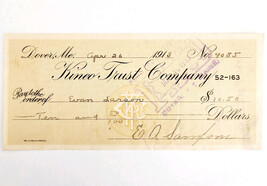 Dover, Me. Apr 26 1913 No. 4035
Kineo Trust Company 52-163
Pay to the order of Evan Larson $10.50
Ten and 50/100 Dollars
E A Sanford